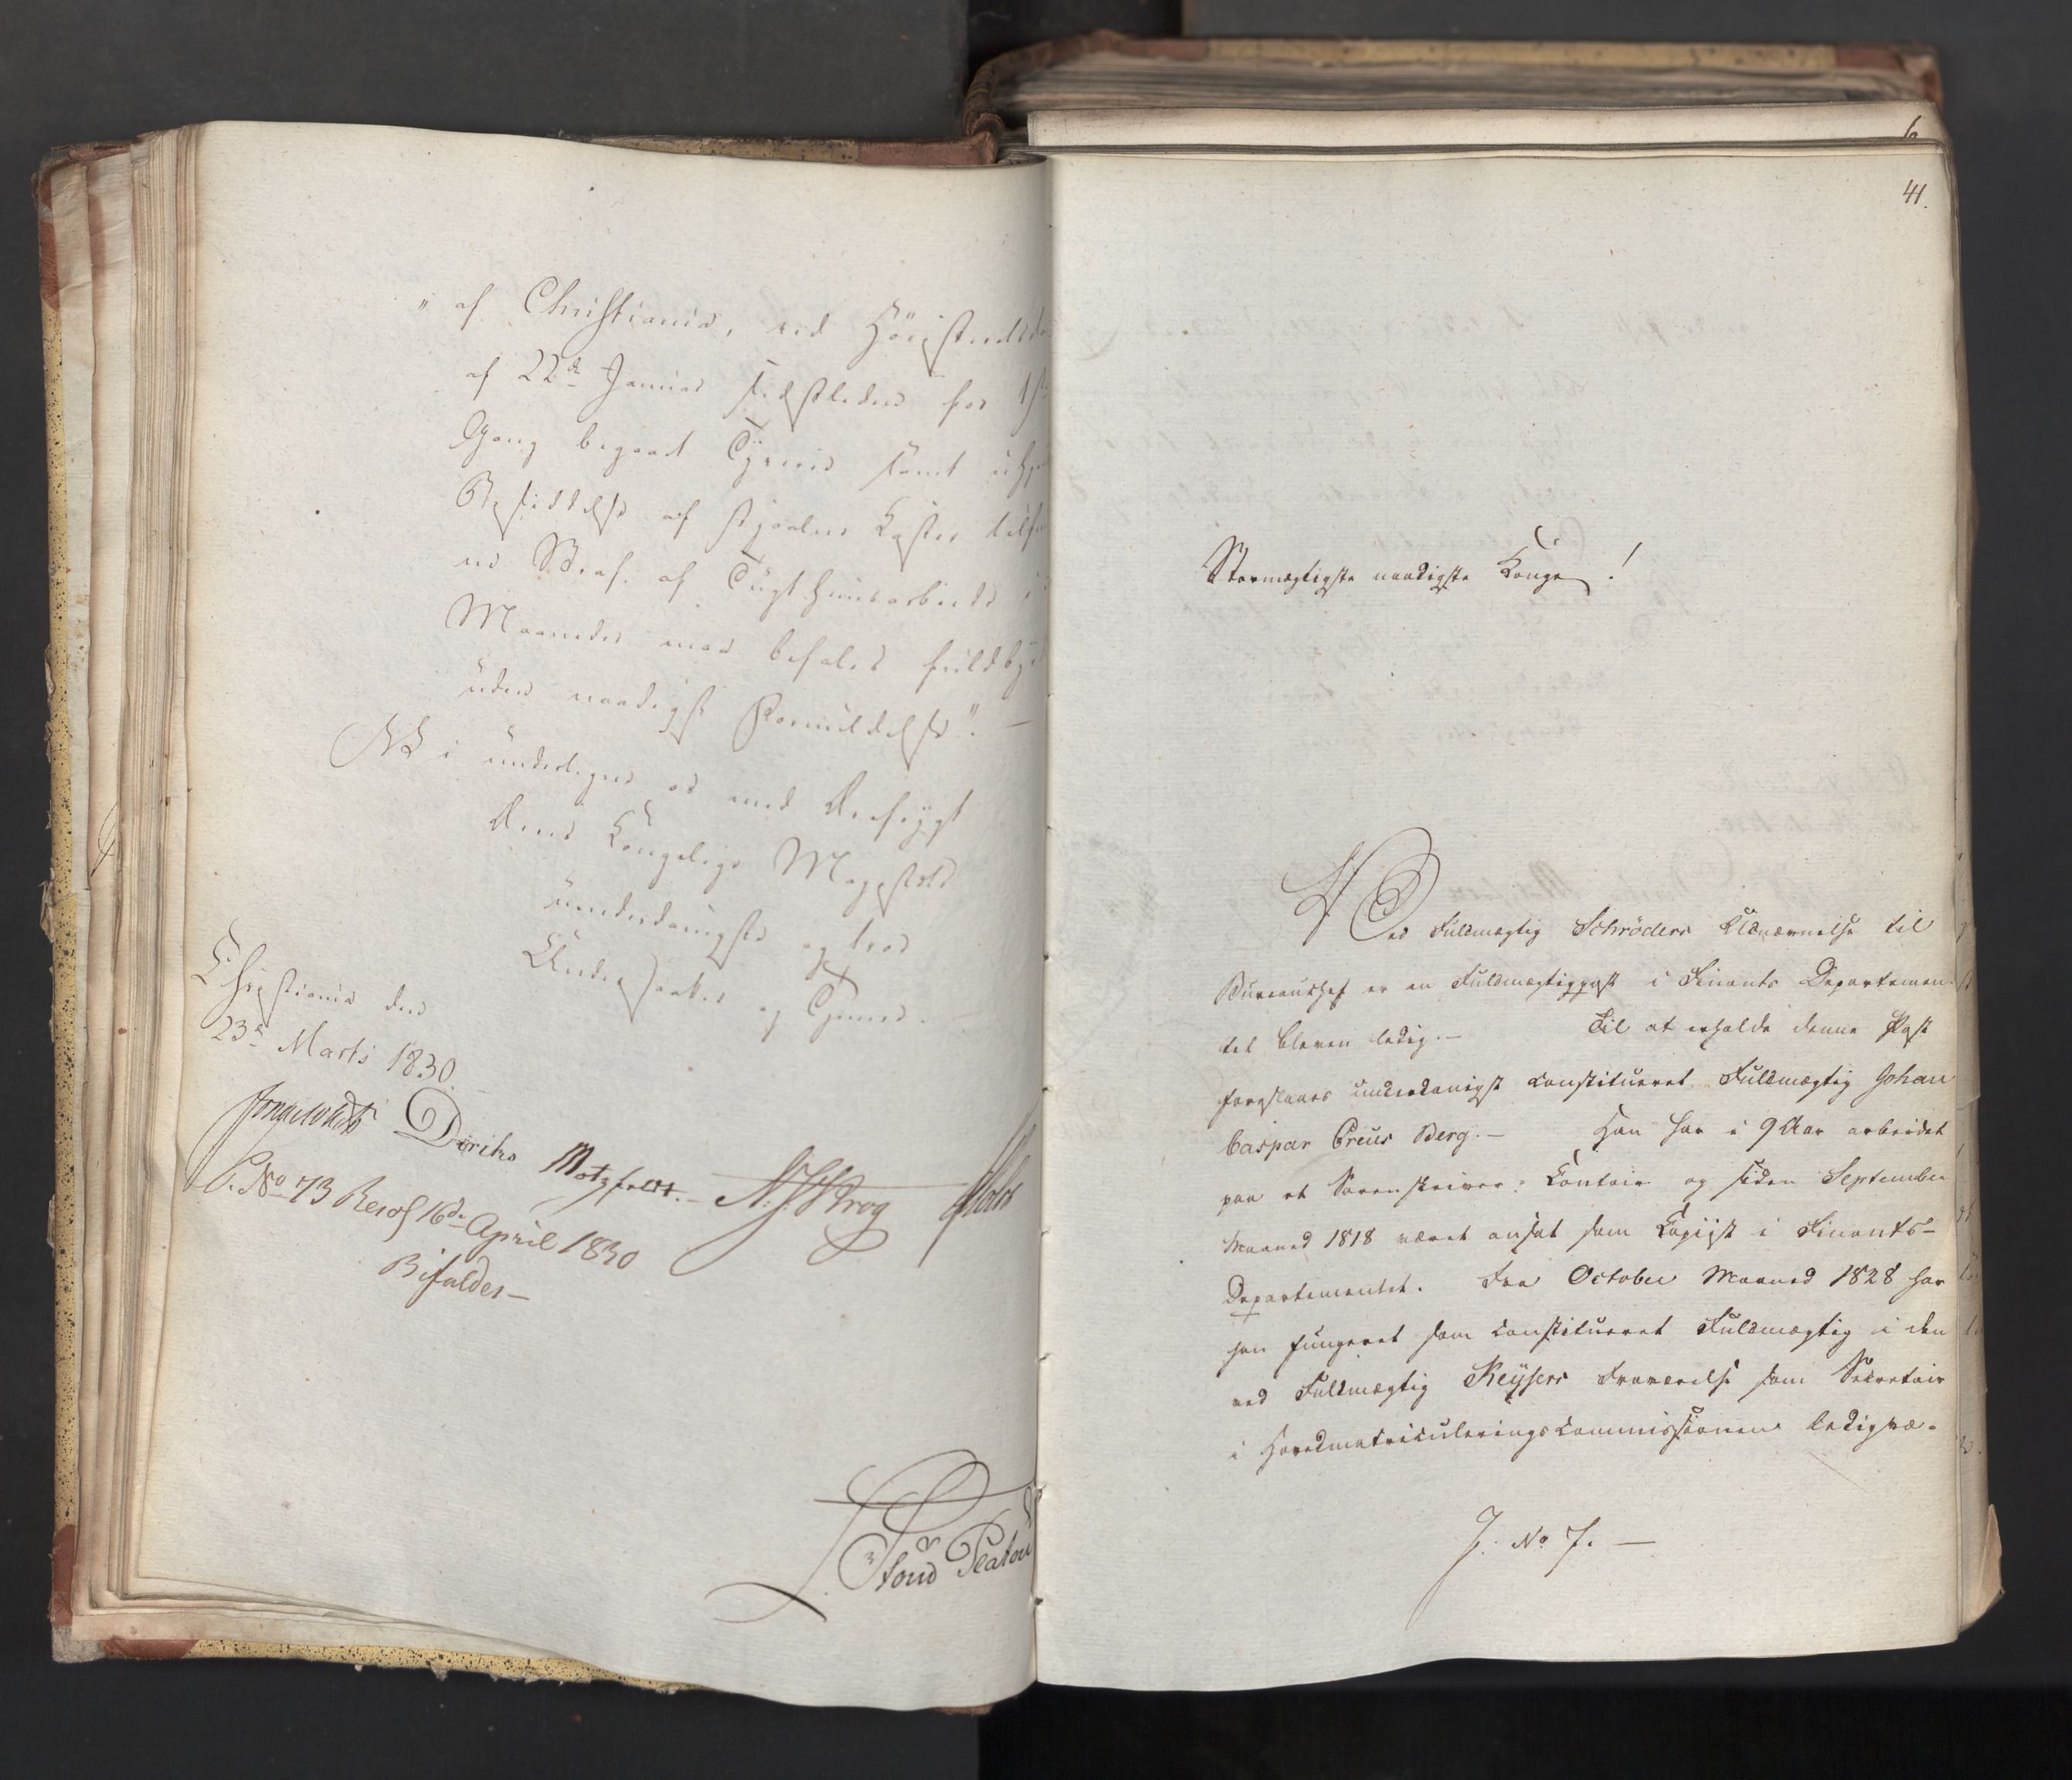 " af Christiania, ved Höiesteretsdo
af 22de Januar sidstleden for 1ste
Gang begaaet Tyverie samt
Besiddelse af stjaalne Koster
en Straf af Tugthuusarbeide i
Maaneder maa befales fuldby
uden naadigst Formildelse". —
Alt i underdanigst
Deres Kongelige Majestæts
underdanigste og troe
Undersaatter og Tjenere.
Christiania den
23de Marts 1830.
Diriks Motzfeldt. — Krog Holst
P. No 73 Resol 16de April 1830
Bifaldes —
6
41.
Stormægtigste naadigste Konge!
Ved Fuldmægtig Schröders Udnævnelse til
Bureauchef er en Fuldmægtigpost i Finants Departemen-
tet bleven ledig. — Til at erholde denne Post
foreslaaes underdanigst constitueret Fuldmægtig Johan
Caspar Preus Berg. — Han har i 9 Aar arbeidet
paa et Sorenskriver-Contoir og siden September
Maaned 1818 været ansat som Copiist i Finants-
Departementet. Fra October Maaned 1828 har
han fungeret som constitueret Fuldmægtig i den
ved Fuldmægtig Keysers Fraværelse som Secretair
i Hovedmatriculeringscommissionen ledigvæ-
J. No 7. —